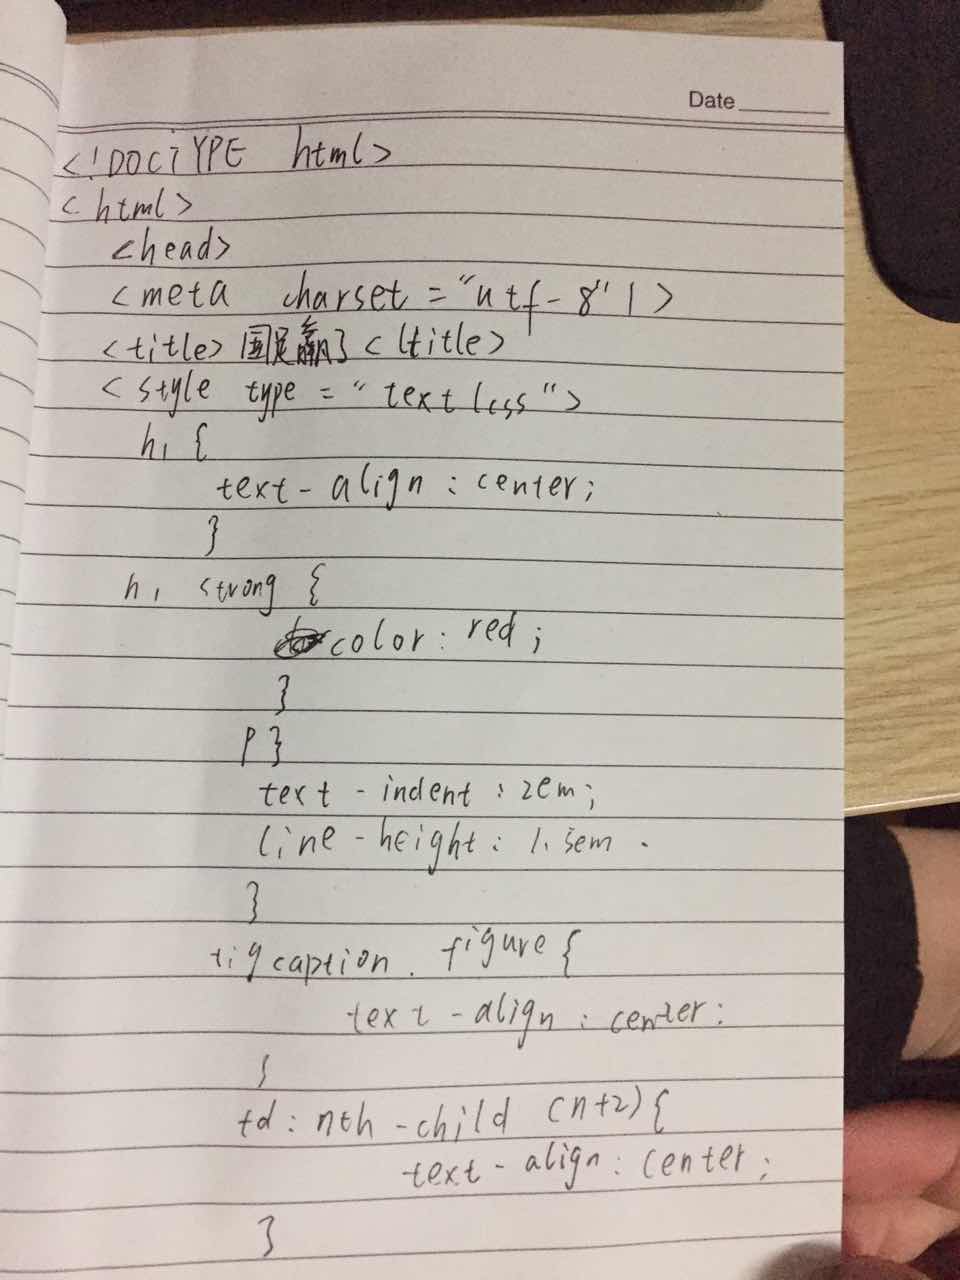 Date
<!DOCTYPE html>
<html>
<head>
<meta charset="utf-8"/>
<title>国足赢了</title>
<style type="text/css">
h1 {
text-align: center;
}
h1 strong {
color: red;
}
p }
text-indent: 2em;
line-height: 1.5em.
}
figcaption. figure {
text-align: center;
}
td: nth-child (n+2) {
text-align: center;
}